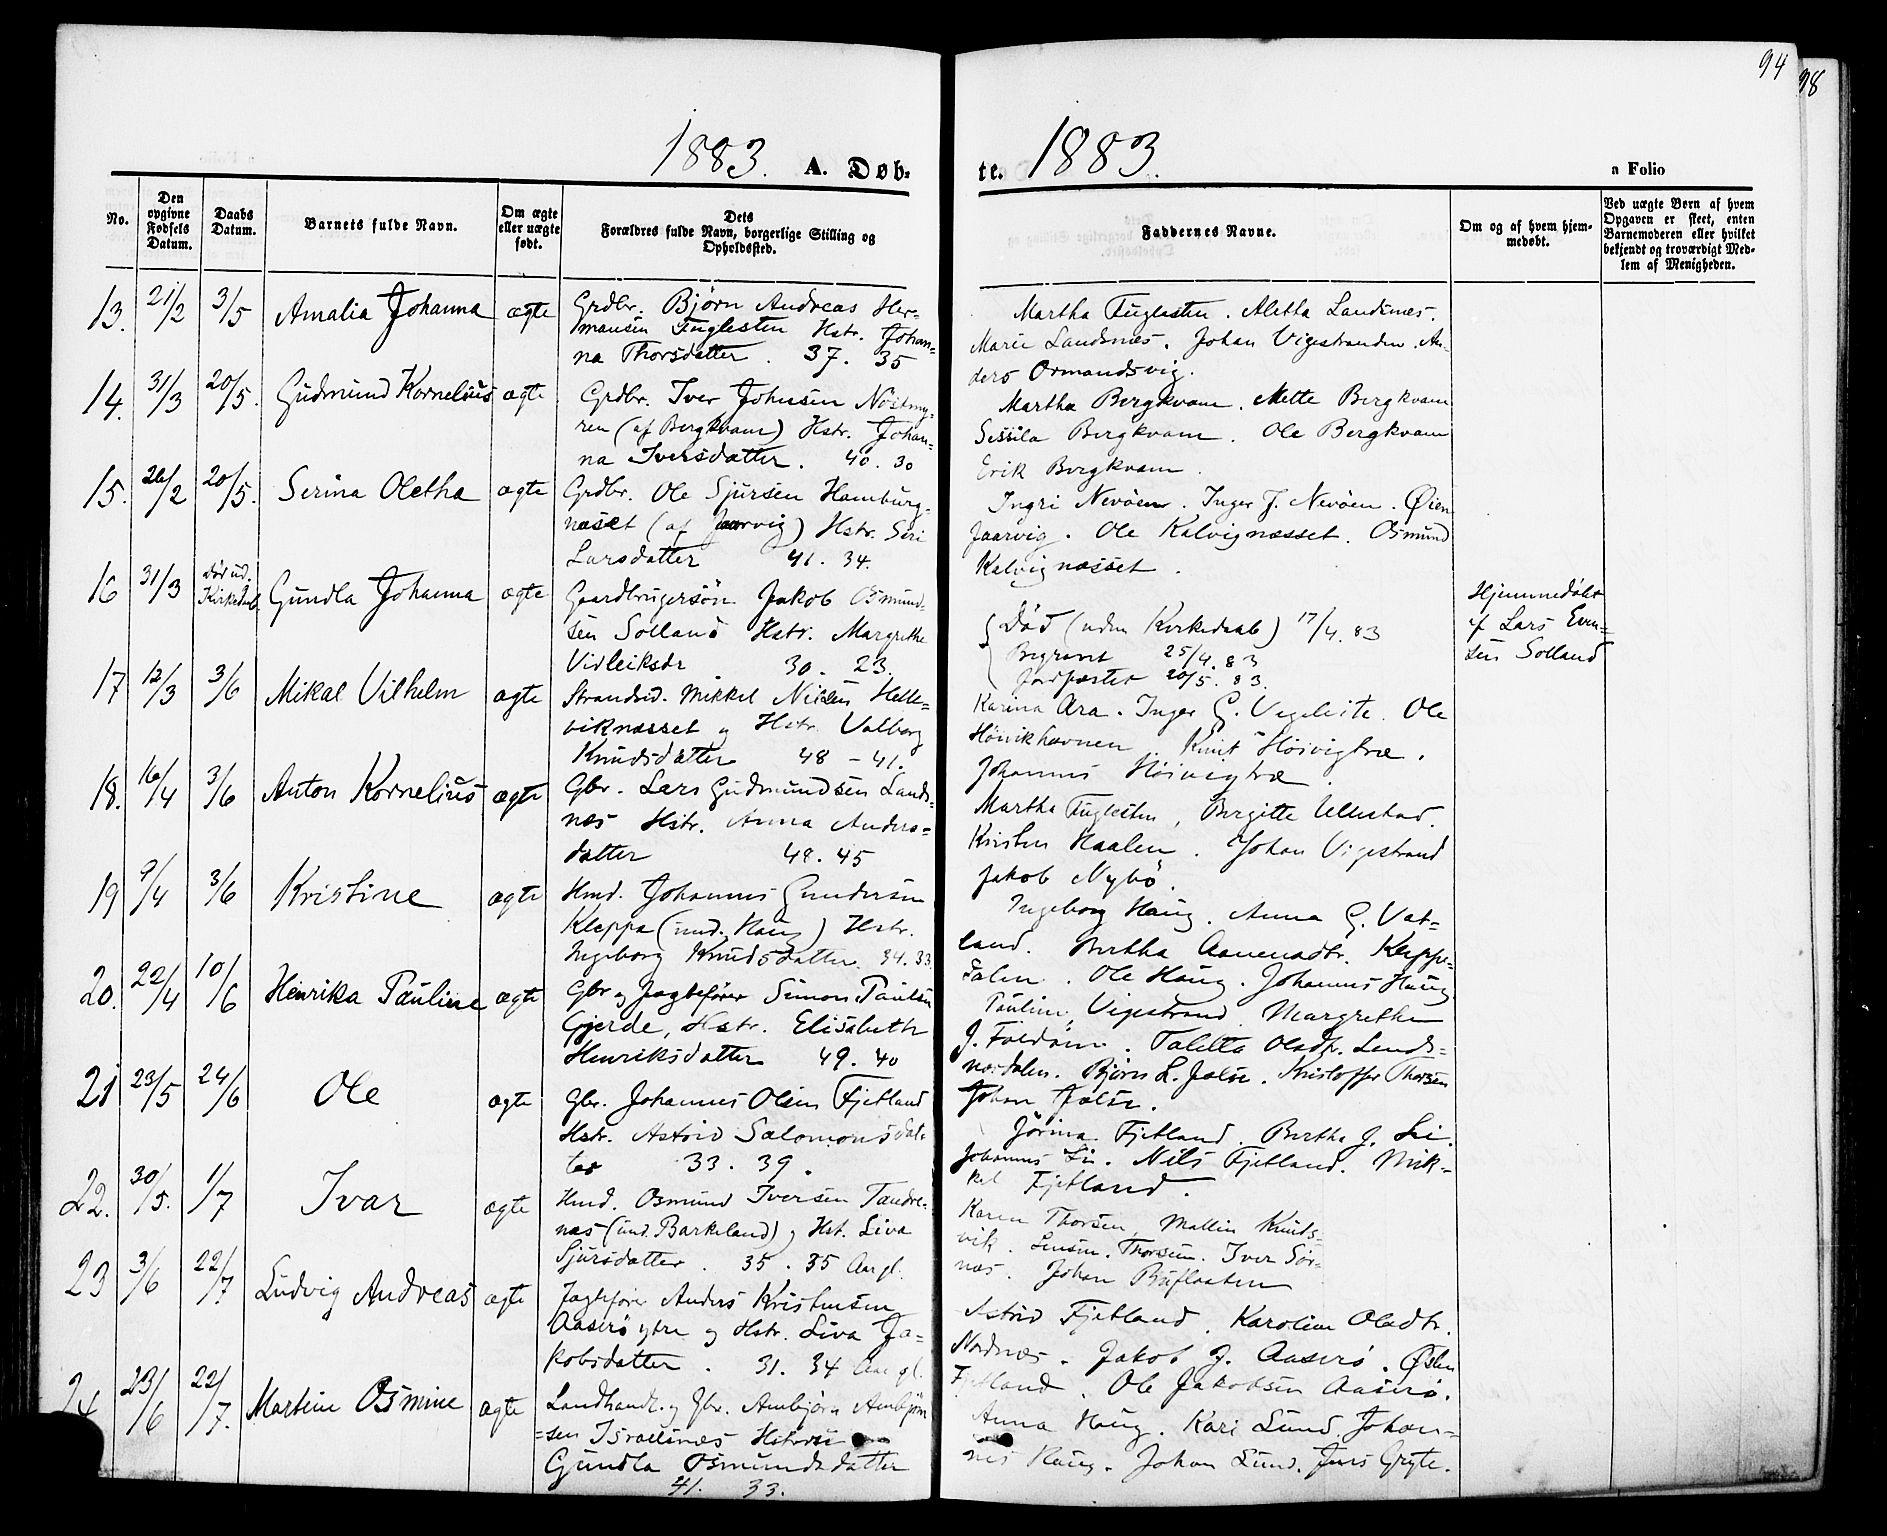 94
98
1883. A. Døb-
te. 1883.
n Folio
No.
Den opgivne Fødsels Datum.
Daabs Datum.
Barnets fulde Navn.
Om ægte eller uægte født.
Dets Forældres fulde Navn, borgerlige Stilling og Opholdssted.
Faddernes Navne.
Om og af hvem hjem-
medøbt.
Ved uægte Børn af hvem
Opgaven er skeet, enten
Barnemoderen eller hvilket
bekjendt og troværdigt Med-
lem af Menigheden.
13. 21/2 3/5 Amalia Johanna ægte
Grdbr. Bjørn Andreas Her-
mansen Fuglesten Hstr. Johan-
na Thorsdatter. 37. 35
Martha Fuglesten. Aletta Landsnes.
Marie Landsnæs. Johan Vigestranden. An-
ders Ormandsvig.
14. 31/3 20/5. Gudmund Kornelius ægte
Grdbr. Iver Johnsen Nøstmy-
ren (af Bergkvam) Hstr. Johan-
na Iversdatter. 40. 30
Martha Bergkvam. Mette Bergkvam
Sessila Bergkvam. Ole Bergkvam
Erik Bergkvam.
15. 26/2 20/5. Serina Oletha ægte
Grdbr. Ole Sjursen Hamburg-
næset (af Jaarvig) Hstr. Siri
Larsdatter 41. 34.
Ingri Nevöen. Inger J. Nevöen. Øien
Jaarvig. Ole Kalvignæsset. Osmund
Kalvignæsset.
16 31/3 Död ud. Kirkedaab Gundla Johanna ægte
Gaardbrugersøn Jakob Osmund-
sen Solland Hstr. Margrethe
Vidleiksdr. 30. 23.
Död (uden Kirkedaab) 17/4. 83
Begravet 25/4. 83
Jordfæstet 20/5. 83.
Hjemmedöbt
af Lars Even-
sen Solland
17 12/3 3/6 Mikal Vilhelm ægte
Strandsid. Mikkel Nilsen Helle-
viknæsset og Hstr. Valborg
Knudsdatter 48 - 41.
Karina Ara. Inger G. Vegeleite. Ole
Höivikhavnen. Knut Höivigtræ.
Johannes Höivigtræ.
18. 16/4 3/6 Anton Kornelius ægte
Gbr. Lars Gudmundsen Lands-
næs Hstr. Anna Anders-
datter 48. 45
Martha Fuglesten, Bergitte Ullestad.
Kirsten Haalen. Johan Vigestrand
Jakob Nybö.
19 9/4 3/6 Kristine ægte
Hmd. Johannes Gundersen
Kleppa (und. Haug) Hstr.
Ingeborg Knudsdatter. 34. 33
Ingeborg Haug. Anna G. Vat-
land. Bertha Aanensdtr. Kleppe-
dalen. Ole Haug. Johannes Haug
20. 22/4 10/6 Henrika Pauline ægte
Gbr og Jagtefører Simon Paulsen
Gjerde, Hstr. Elisabeth
Henriksdatter 49. 40
Pauline Vigestrand. Margrethe
J. Foldöin. Taletta Olsdtr. Lands-
næsdalen. Björn L. Jolse. Kristoffer Thorsen
Johan Jolse.
21 23/5 24/6 Ole ægte
Gbr. Johannes Olsen Fjetland
Hstr. Astrid Salomonsdat-
ter 33. 39.
Jörina Fjetland. Bertha J. Li.
Johannes Li. Nils Fjetland. Mik-
kel Fjetland.
22. 30/5. 1/7 Ivar ægte
Hmd. Osmund Iversen Tandre-
næs (und. Barkeland) og Hst. Siva
Sjursdatter. 35. 35 Aar gl.
Karen Thorsen, Mallin Knuts-
vik. Thorsen. Iver Sör-
næs. Johan Buflaaten
23 3/6 22/7. Ludvig Andreas ægte
Jagtefører Anders Kristensen
Aaserö ytre og Hstr. Siva Ja-
kobsdatter. 31. 34 Aar gl.
Astrid Fjetland. Karoline Olsdtr.
Nordnæs. Jakob J. Aaserö. Östen
Fjetland. Ole Jakobsen Aaserö.
24 23/6 22/7. Martine Osmine ægte
Landhandl. og Gbr. Ambjörn Ambjörn-
sen Israelsnæs Hstru
Gundla Osmundsdatter
41. 33.
Anna Haug. Kari Lund. Johan-
nes Haug. Johan Lund. Jens Gryte.